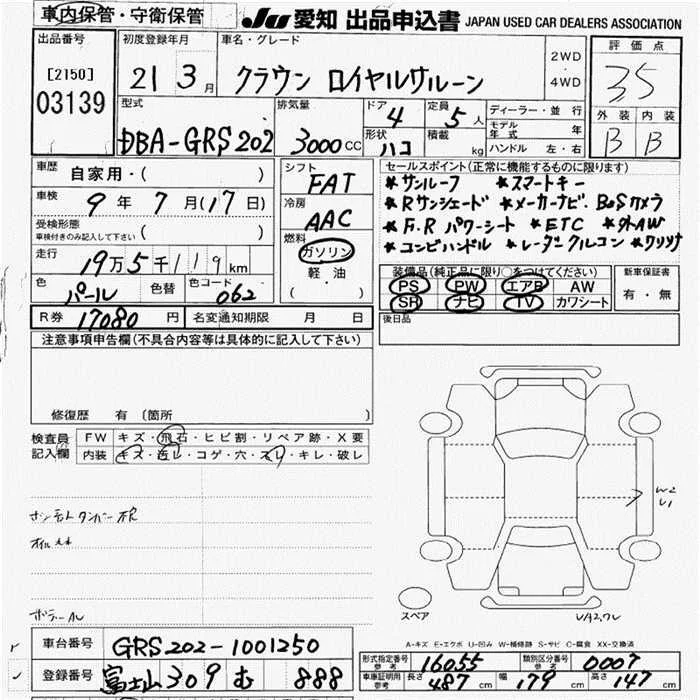 車内保管・守衛保管
JU 愛知 出品申込書 JAPAN USED CAR DEALERS ASSOCIATION
出品番号
[2150]
03139
初度登録年月
21 3月
車名・グレード
クラウン ロイヤルサルーン
2WD
・
4WD
評価点
3.5
外装 内装
B B
型式
DBA-GRS202
排気量
3000CC
ドア
4
定員
5人
形状
ハコ
積載
kg
ディーラー・並行
モデル年式 年
ハンドル 左・右
車歴
自家用・( )
車検
9年 7月(17日)
受検形態
車検付きのみ記入して下さい ( )
走行
19万5千119km
色
パール
色替
色コード
062
シフト
FAT
冷房
AAC
燃料
ガソリン
軽・油
( )
セールスポイント(正常に機能するものに限ります)
*サンルーフ *スマートキー
*Rサンシェード *メーカーナビ. B&Sカメラ
*F.R パワーシート *ETC *外AW
*コンビハンドル *レーダークルコン *ワンオナ
装備品(純正品に限り○をつけてください)
PS PW エアB AW
SR ナビ TV カワシート
新車保証書
有・無
R券 17080円
名変通知期限 月 日
後日品
注意事項申告欄(不具合内容等は具体的に記入して下さい)
修復歴 有 〔箇所 〕
検査員記入欄
FW キズ・飛石・ヒビ割・リペア跡・X要
内装 キズ・汚レ・コゲ・穴・スレ・キレ・破レ
W2
U1
スペア
A-キズ E-エクボ U-凹み W-補修跡 S-サビ C-腐食 XX-交換済
車台番号
GRS202-1001250
登録番号
富士山 309 む 888
形式指定番号
参考
16055
類別区分番号
参考
0007
車庫証明用
参考
長さ 487cm 幅 179cm 高さ 147cm